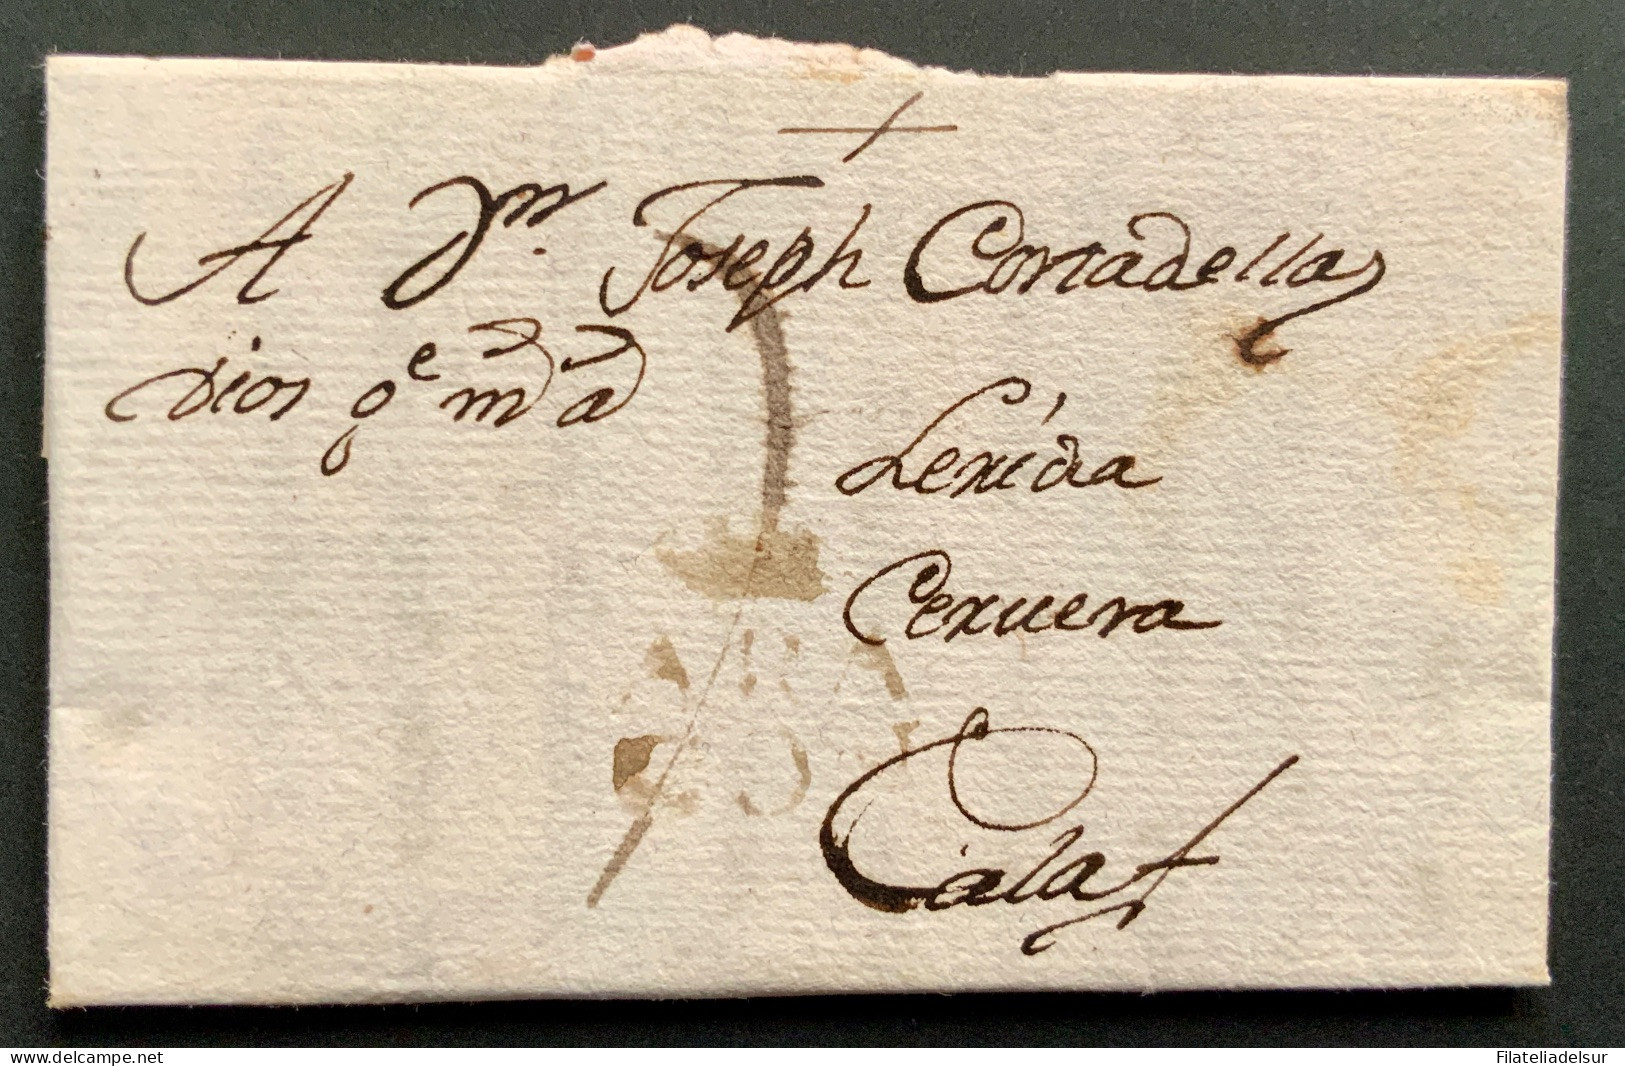 +
A Dn. Joseph Cortadella
Dios ge ms as
Lexida
Cexuera
ARA
Calaf
delcampe.net
Filateliadelsur